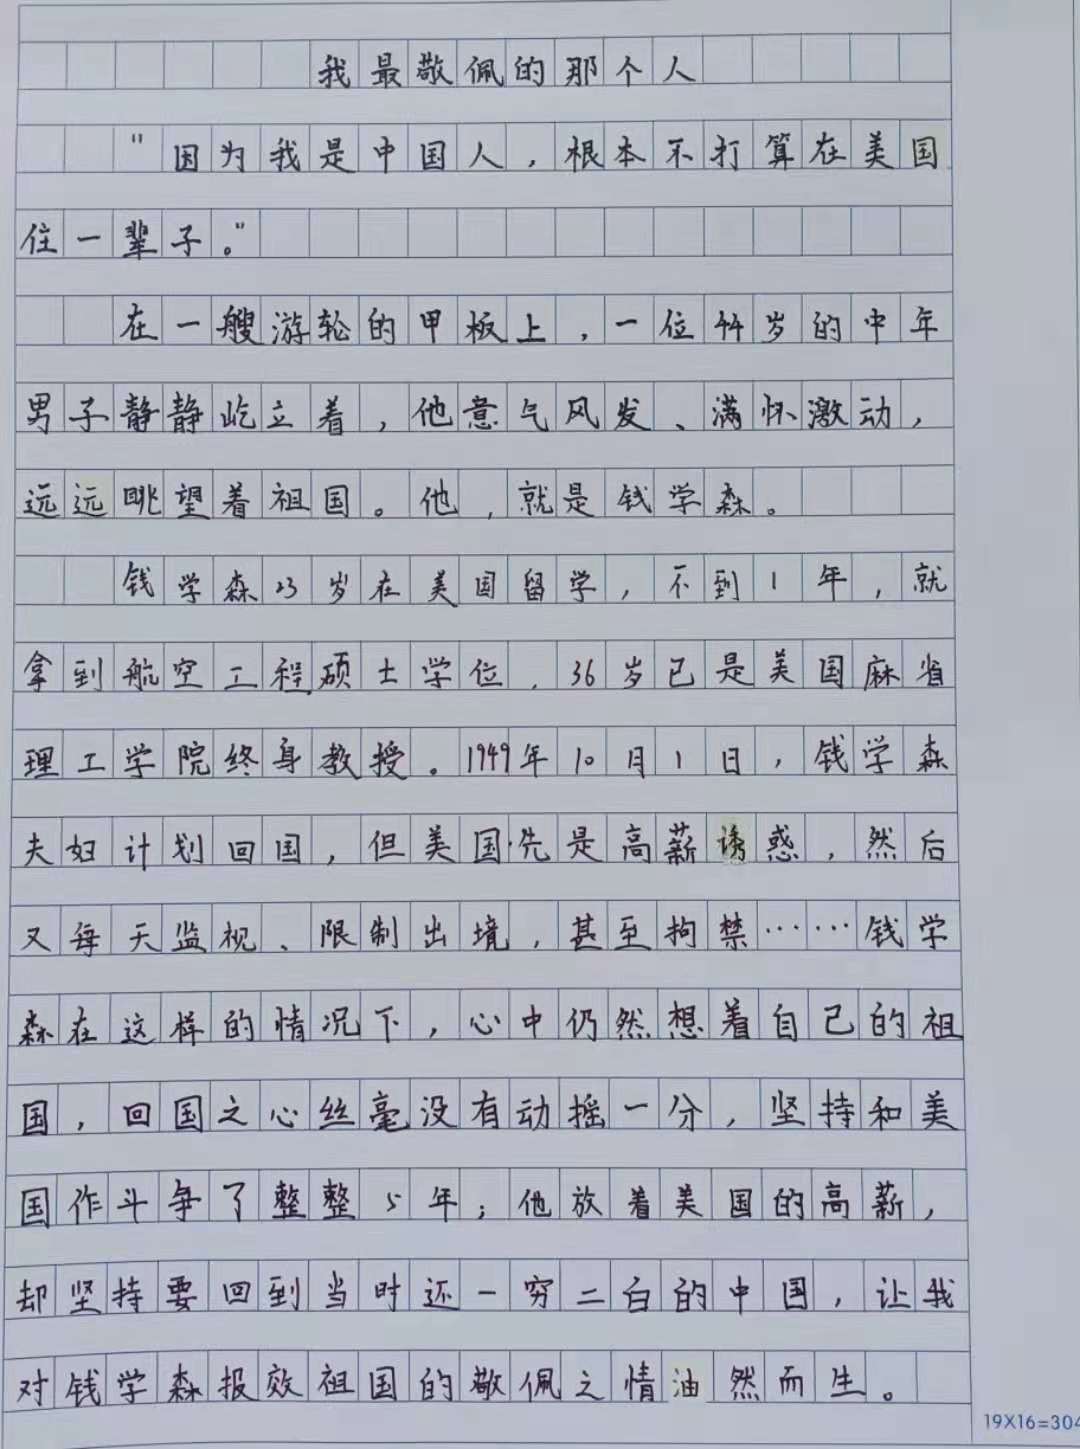 我最敬佩的那个人
"因为我是中国人，根本不打算在美国
住一辈子。"
在一艘游轮的甲板上，一位44岁的中年
男子静静屹立着，他意气风发、满怀激动，
远远眺望着祖国。他，就是钱学森。
钱学森23岁在美国留学，不到1年，就
拿到航空工程硕士学位，36岁已是美国麻省
理工学院终身教授。1949年10月1日，钱学森
夫妇计划回国，但美国先是高薪诱惑，然后
又每天监视、限制出境，甚至拘禁……钱学
森在这样的情况下，心中仍然想着自己的祖
国，回国之心丝毫没有动摇一分，坚持和美
国作斗争了整整5年；他放着美国的高薪，
却坚持要回到当时还一穷二白的中国，让我
对钱学森报效祖国的敬佩之情油然而生。
19X16=304